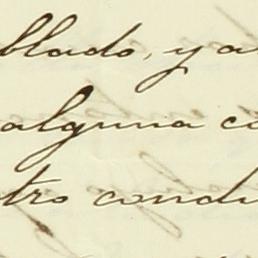 blado, y a
alguna co
tro condu